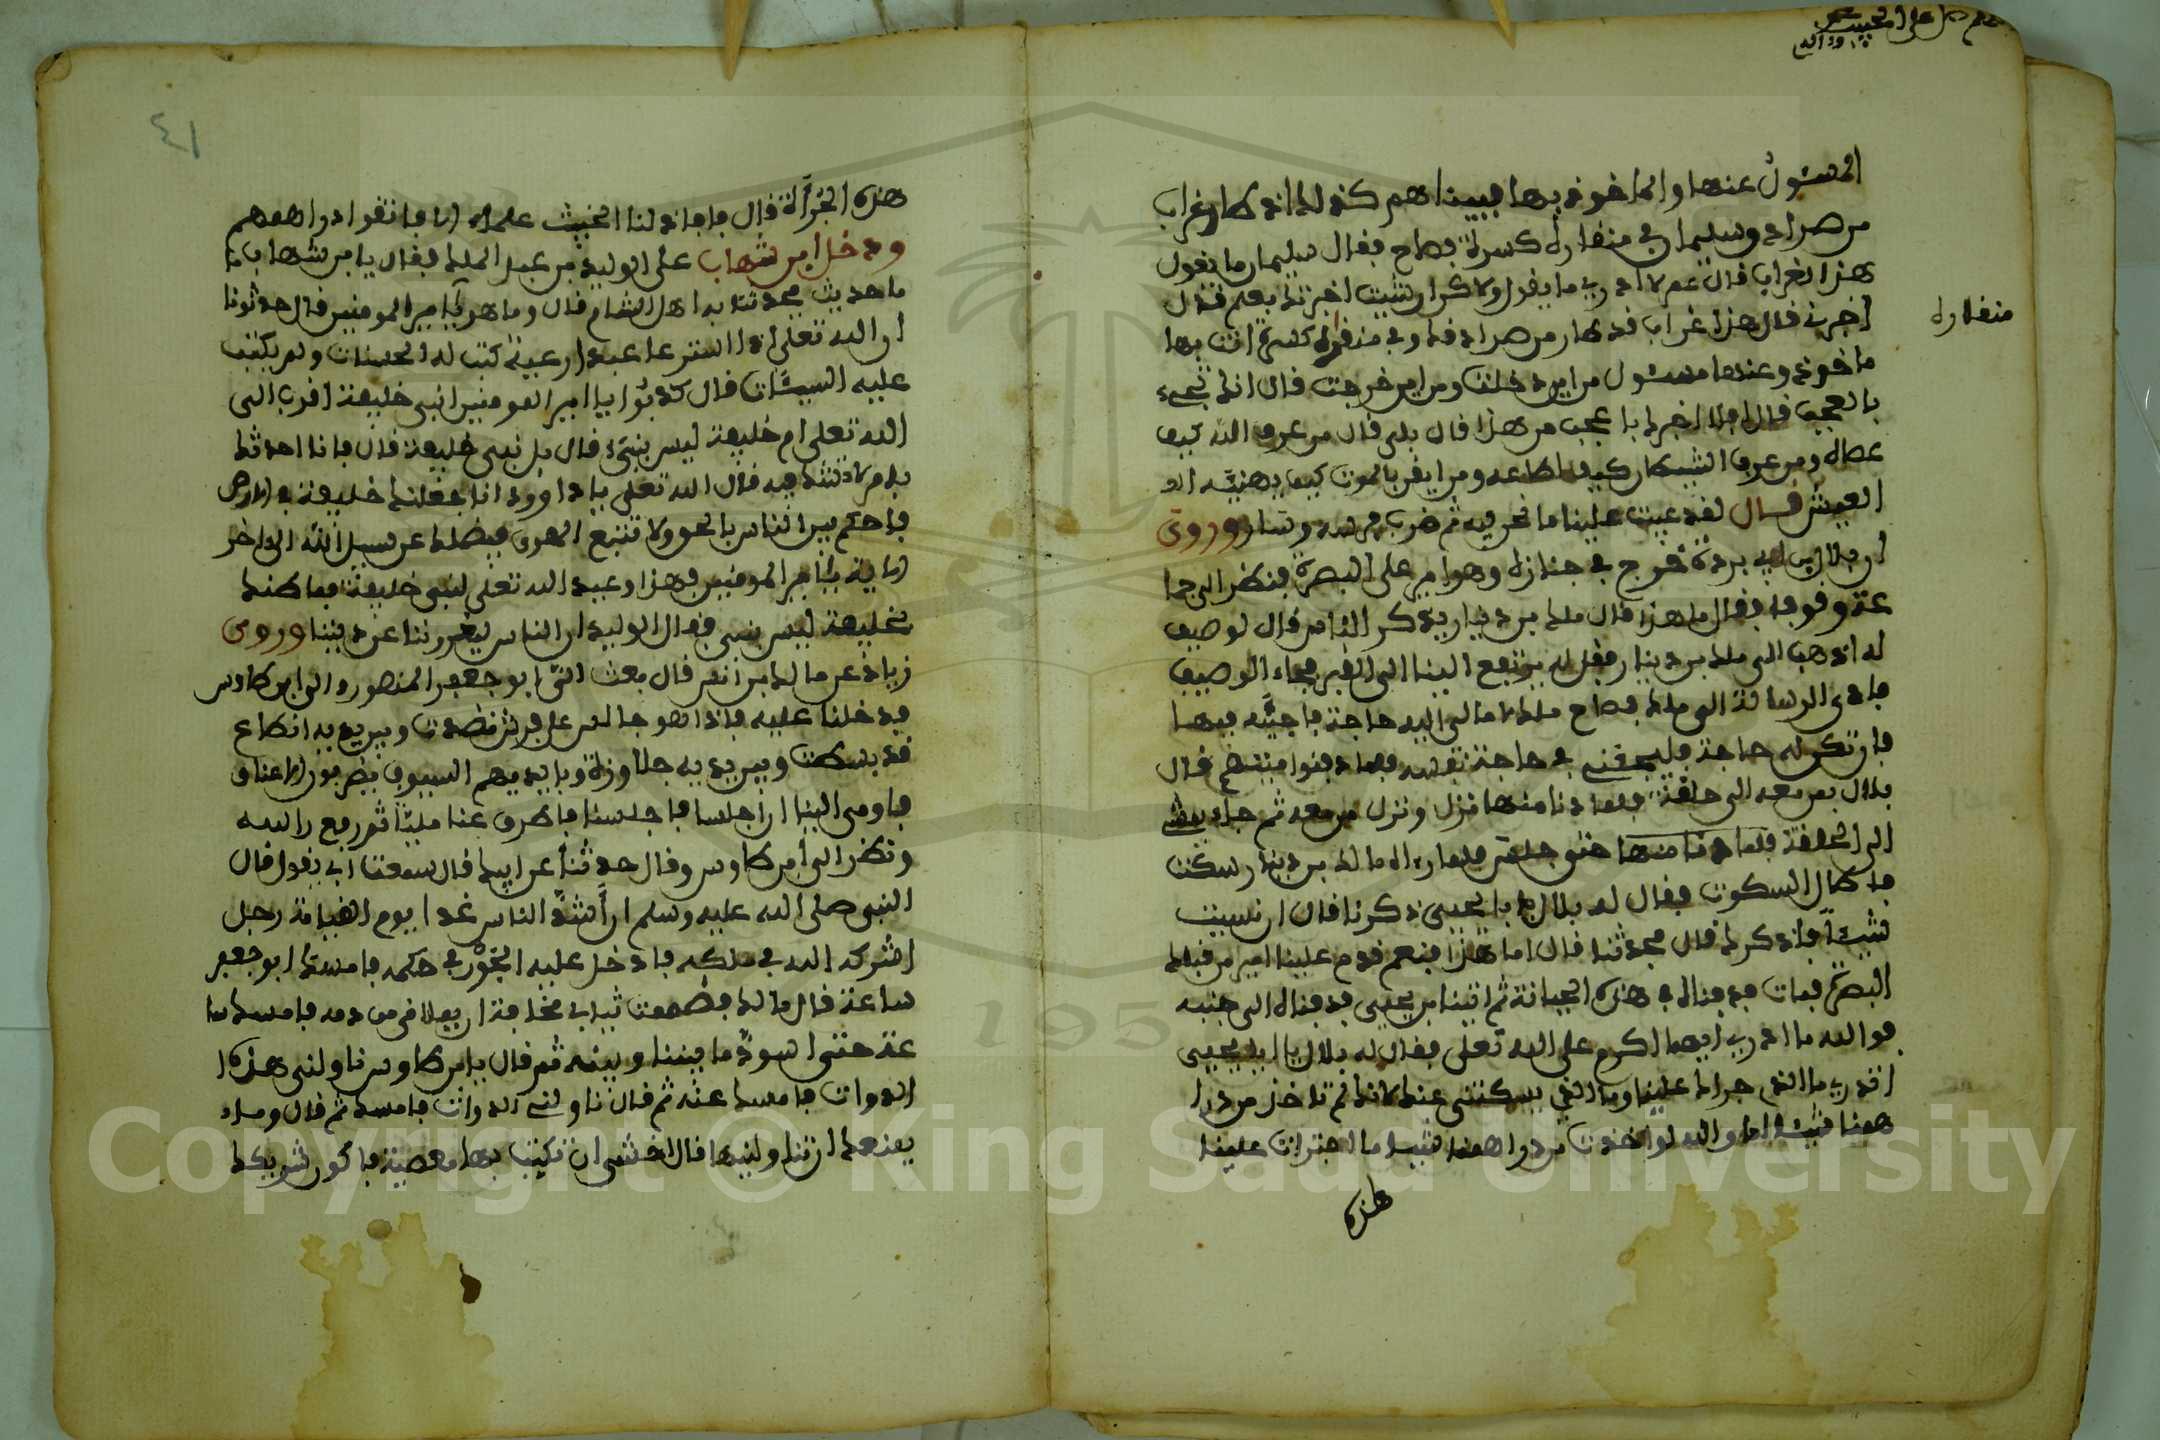 المسئول عنها والماخوذ بها فبيناهم كذلك اذ طار غراب
من صرادح وسليمان في منقاره كسرة فصاح فقال سليمان ما يقول
هذا الغراب قال عمر لا ادري ما يقول ولاكن ان شيت اخبرتك بعلم قال
اخبرني قال هذا غراب قد طار من صرادحك وفي منقاره كسرة انت بها
ماخوذ وعنها مسئول من اين دخلت ومن اين خرجت قال انك تجيء
بالعجب قال افلا اخبرك باعجب من هذا قال بلى قال من عرف الله كيف
عصاه ومن عرف الشيطان كيف اطاعه ومن ايقن بالموت كيف يهنيه
العيش قال لقد غبت علينا ما نحن فيه ثم ضرب فرسه وسار وروى
ان بلال بن ابي بردة خرج في جنازة وهو امير على البصرة فنظر الى جما
عة وقوفا فقال ما هذا قال ملك بن دينار يذكر الناس قال لوصيف
له اذهب الى ملك بن دينار فقل له يرتفع الينا الى القبر فجاء الوصيف
فادى الرسالة الى ملك فصاح ملك ما لي اليه حاجة فاجيئه فيها
فان تكن له حاجة فليجئني في حاجة نفسه فلما دفنوا ميتهم قال
بلال بمن معه الى حلقة فلما دنا منها نزل ونزل من معه ثم جاء يمشي
الى الحلقة فلما دنا منها حتى جلس فلما رءاه مالك بن دينار سكت
فاطال السكوت فقال له بلال يا با يحيى ذكرنا قال ان نسيت
شيئا فاذكرك قال فحدثنا قال اما هذا فنعم قدم علينا امير من قبلك
البصرة فمات فدفناه في هذه الجبانة ثم اتينا بزنجي فدفناه الى جنبه
فوالله ما ادري ايهما اكرم على الله تعلى فقال له بلال يا ابا يحيى
اتدري ما الذي جراك علينا وما الذي يسكتني عنك لانك لم تاخذ من درا
همنا شيئا اما والله لو اخذت من دراهمنا شيئا ما اجترات علينا
هذه
منقاره
هذه الجرأة قال فافاد لنا الخبيث علما الا فاتقوا دراهمهم
ودخل ابن شهاب على الوليد بن عبد الملك فقال يابن شهاب
ما حديث يحدثنا به اهل الشام قال وما هو يا امير المومنين قال حدثونا
ان الله تعلى اذا استرعا عبدا رعية كتب له الحسنات ولم يكتب
عليه السيئات قال كذبوا يا امير المومنين انبي خليفة اقرب الى
الله تعلى ام خليفة ليس بنبيء قال بل نبي خليفة قال فانا احدثك
بما لا تشك فيه قال الله تعلى يا داوود انا جعلنك خليفة في الارض
فاحكم بين الناس بالحق ولا تتبع الهوى فيضلك عن سبيل الله الى ءاخر
الاية يا امير المومنين فهذا وعيد الله تعلى لنبي خليفة فما ظنك
بخليفة ليس بنبي فقال الوليد ان الناس ليغروننا عن ديننا وروى
زياد عن مالك بن انس قال بعث الي ابو جعفر المنصور والى ابن طاوس
فدخلنا عليه فاذا هو جالس على فرش نضدت وبين يديه انطاع
قد بسطت وبين يديه جلاوزة وبايديهم السيوف يضربون الاعناق
فاومى الينا ان اجلسا فاجلسنا فاطرق عنا مليا ثم رفع راسه
ونظر الى ابن طاوس وقال حدثنا عن ابيك قال سمعت ابي يقول قال
النبي صلى الله عليه وسلم ان اشد الناس غدا يوم القيامة رجل
اشركه الله في ملكه فادخل عليه الجور في حكمه فامسك ابو جعفر
ساعة قال مالك فضممت ثيابي مخافة ان يملاني من دمه فامسك سا
عة حتى اسود ما بيننا وبينه ثم قال يابن طاوس ناولني هذه ا
الدوات فامسك عنه ثم قال ناولني الدوات فامسك ثم قال وما
يمنعك ان تناولنيها قال اخشى ان تكتب بها معصية فاكون شريكك
٤١